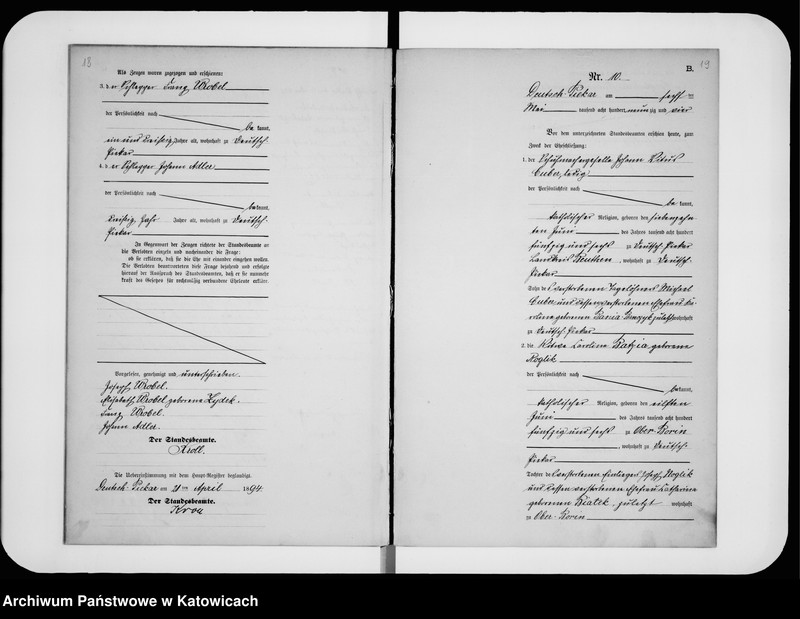 18
Als Zeugen waren zugezogen und erschienen:
3. der Häger Franz Wrobel
der Persönlichkeit nach
be kannt,
ein und dreißig Jahre alt, wohnhaft zu Deutsch-
Piekar
4. der Johann Adler
der Persönlichkeit nach
bekannt,
dreißig Jahr Jahre alt, wohnhaft zu Deutsch-
Piekar
In Gegenwart der Zeugen richtete der Standesbeamte an
die Verlobten einzeln und nacheinander die Frage:
ob sie erklären, daß sie die Ehe mit einander eingehen wollen.
Die Verlobten beantworteten diese Frage bejahend und erfolgte
hierauf der Ausspruch des Standesbeamten, daß er sie nunmehr
kraft des Gesetzes für rechtmäßig verbundene Eheleute erkläre.
Vorgelesen, genehmigt und unterschrieben
Joseph Wrobel.
Elisabeth Wrobel geborene
Franz Wrobel.
Johann Adler.
Der Standesbeamte.
Kroll.
Die Uebereinstimmung mit dem Haupt-Register beglaubigt.
Deutsch-Piekar am ten April 1894
Der Standesbeamte.
Kroll
19
B.
Nr. 10.
Deutsch-Piekar am sechs ten
Mai tausend acht hundert neunzig und vier
Vor dem unterzeichneten Standesbeamten erschien heute, zum
Zweck der Eheschließung:
1. der Schuhmachergeselle Johann
Cuber, ledig
der Persönlichkeit nach
be kannt,
katholischer Religion, geboren den siebenzehn
ten Juni des Jahres tausend acht hundert
fünfzig und sechs zu Deutsch Piekar
Landkreis Beuthen, wohnhaft zu Deutsch-
Piekar
Sohn des verstorbenen Tagelöhners Michael
Cuber und dessen verstorbenen Ehefrau
geborenen zuletzt wohnhaft
zu Deutsch-Piekar
2. die Witwe Karolina geborene
Roglik
der Persönlichkeit nach
bekannt,
katholischer Religion, geboren den eilften
Juni des Jahres tausend acht hundert
fünfzig und sechs zu Ober Borin
, wohnhaft zu Deutsch-
Piekar
Tochter des verstorbenen Einliegers Joseph Roglik
und dessen verstorbenen Ehefrau Katharina
geborenen Bialek, zuletzt wohnhaft
zu Ober-Borin
Archiwum Państwowe w Katowicach